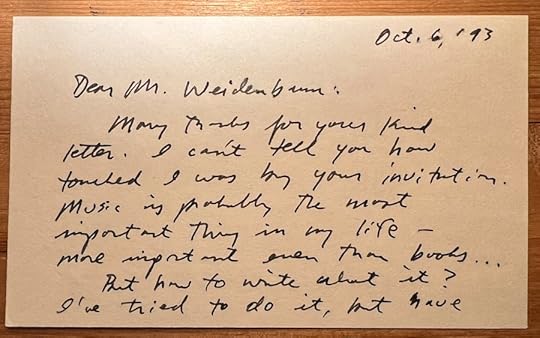 Oct. 6, '93
Dear Mr. Weidenbaum:
Many thanks for your kind
letter. I can't tell you how
touched I was by your invitation.
Music is probably the most
important thing in my life —
more important even than books...
But how to write about it?
I've tried to do it, but have